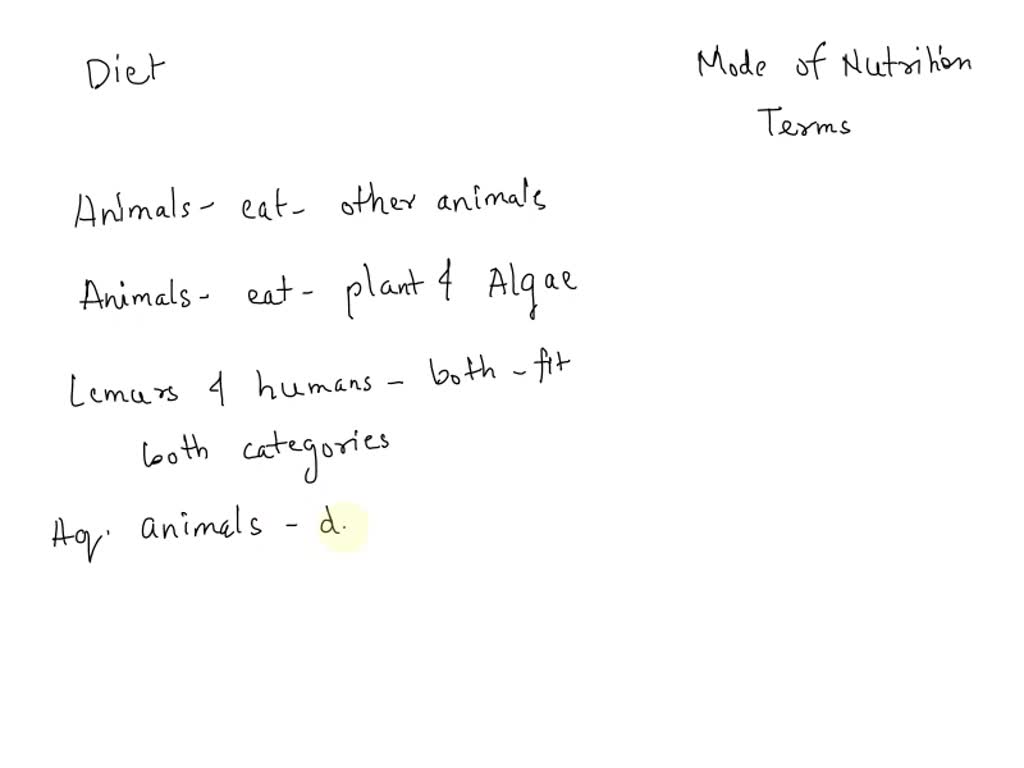 Diet
Mode of Nutrition
Terms
Animals - eat - other animals
Animals - eat - plant & Algae
Lemurs & humans - both - fit
both categories
Aq. animals - d.